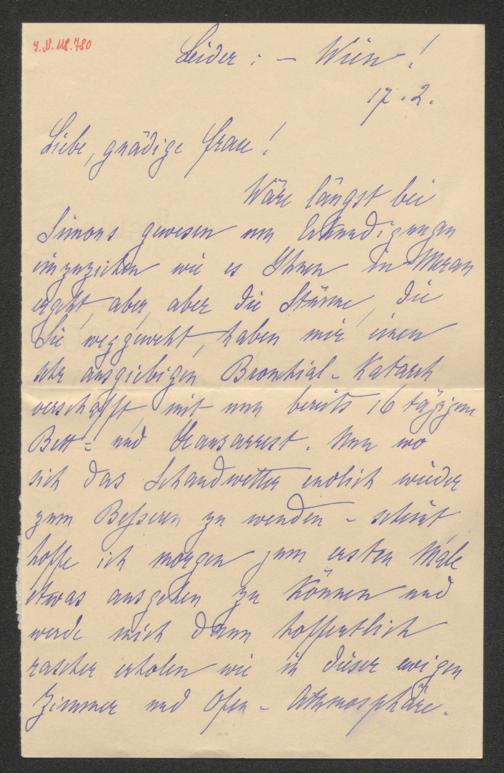 I.N. 118.780
Leider : – Wien !
17.2.
Liebe, gnädige Frau !
Wäre längst bei
Simons gewesen um Erkundigungen
einzuziehen wie es Ihnen in Meran
ergeht, aber, aber die Stürme, die
Sie weggeweht, haben mir einen
sehr ausgiebigen Bronchial-Katarrh
verschafft mit nun bereits 16 tägigem
Bett- und Hausarrest. Nun wo
sich das Schandwetter endlich wieder
zum Besseren zu wenden – scheint
hoffe ich morgen zum ersten Male
etwas ausgehen zu können und
werde mich dann hoffentlich
rascher erholen wie in dieser ewigen
Zimmer und Ofen – Athmosphäre.